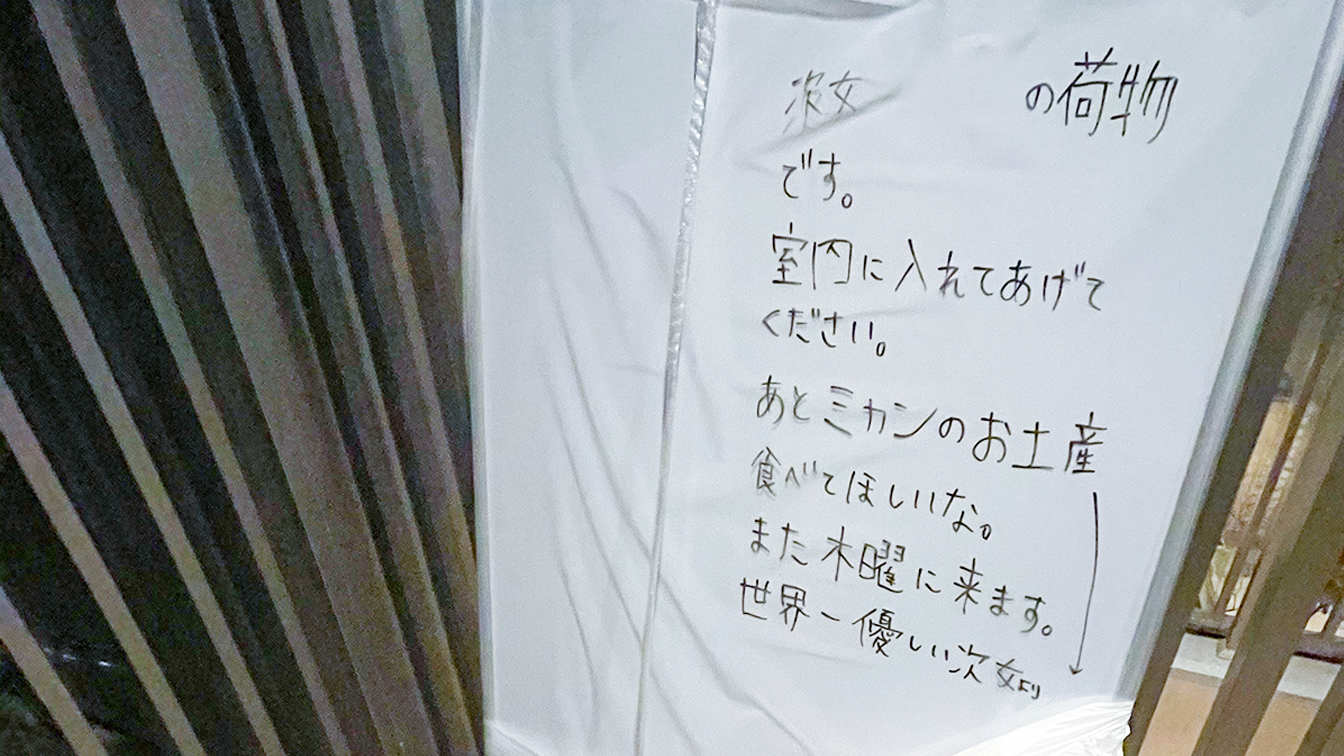 次女 の荷物
です。
室内に入れてあげて
ください。
あとミカンのお土産
食べてほしいな。
また木曜に来ます。
世界一優しい次女より